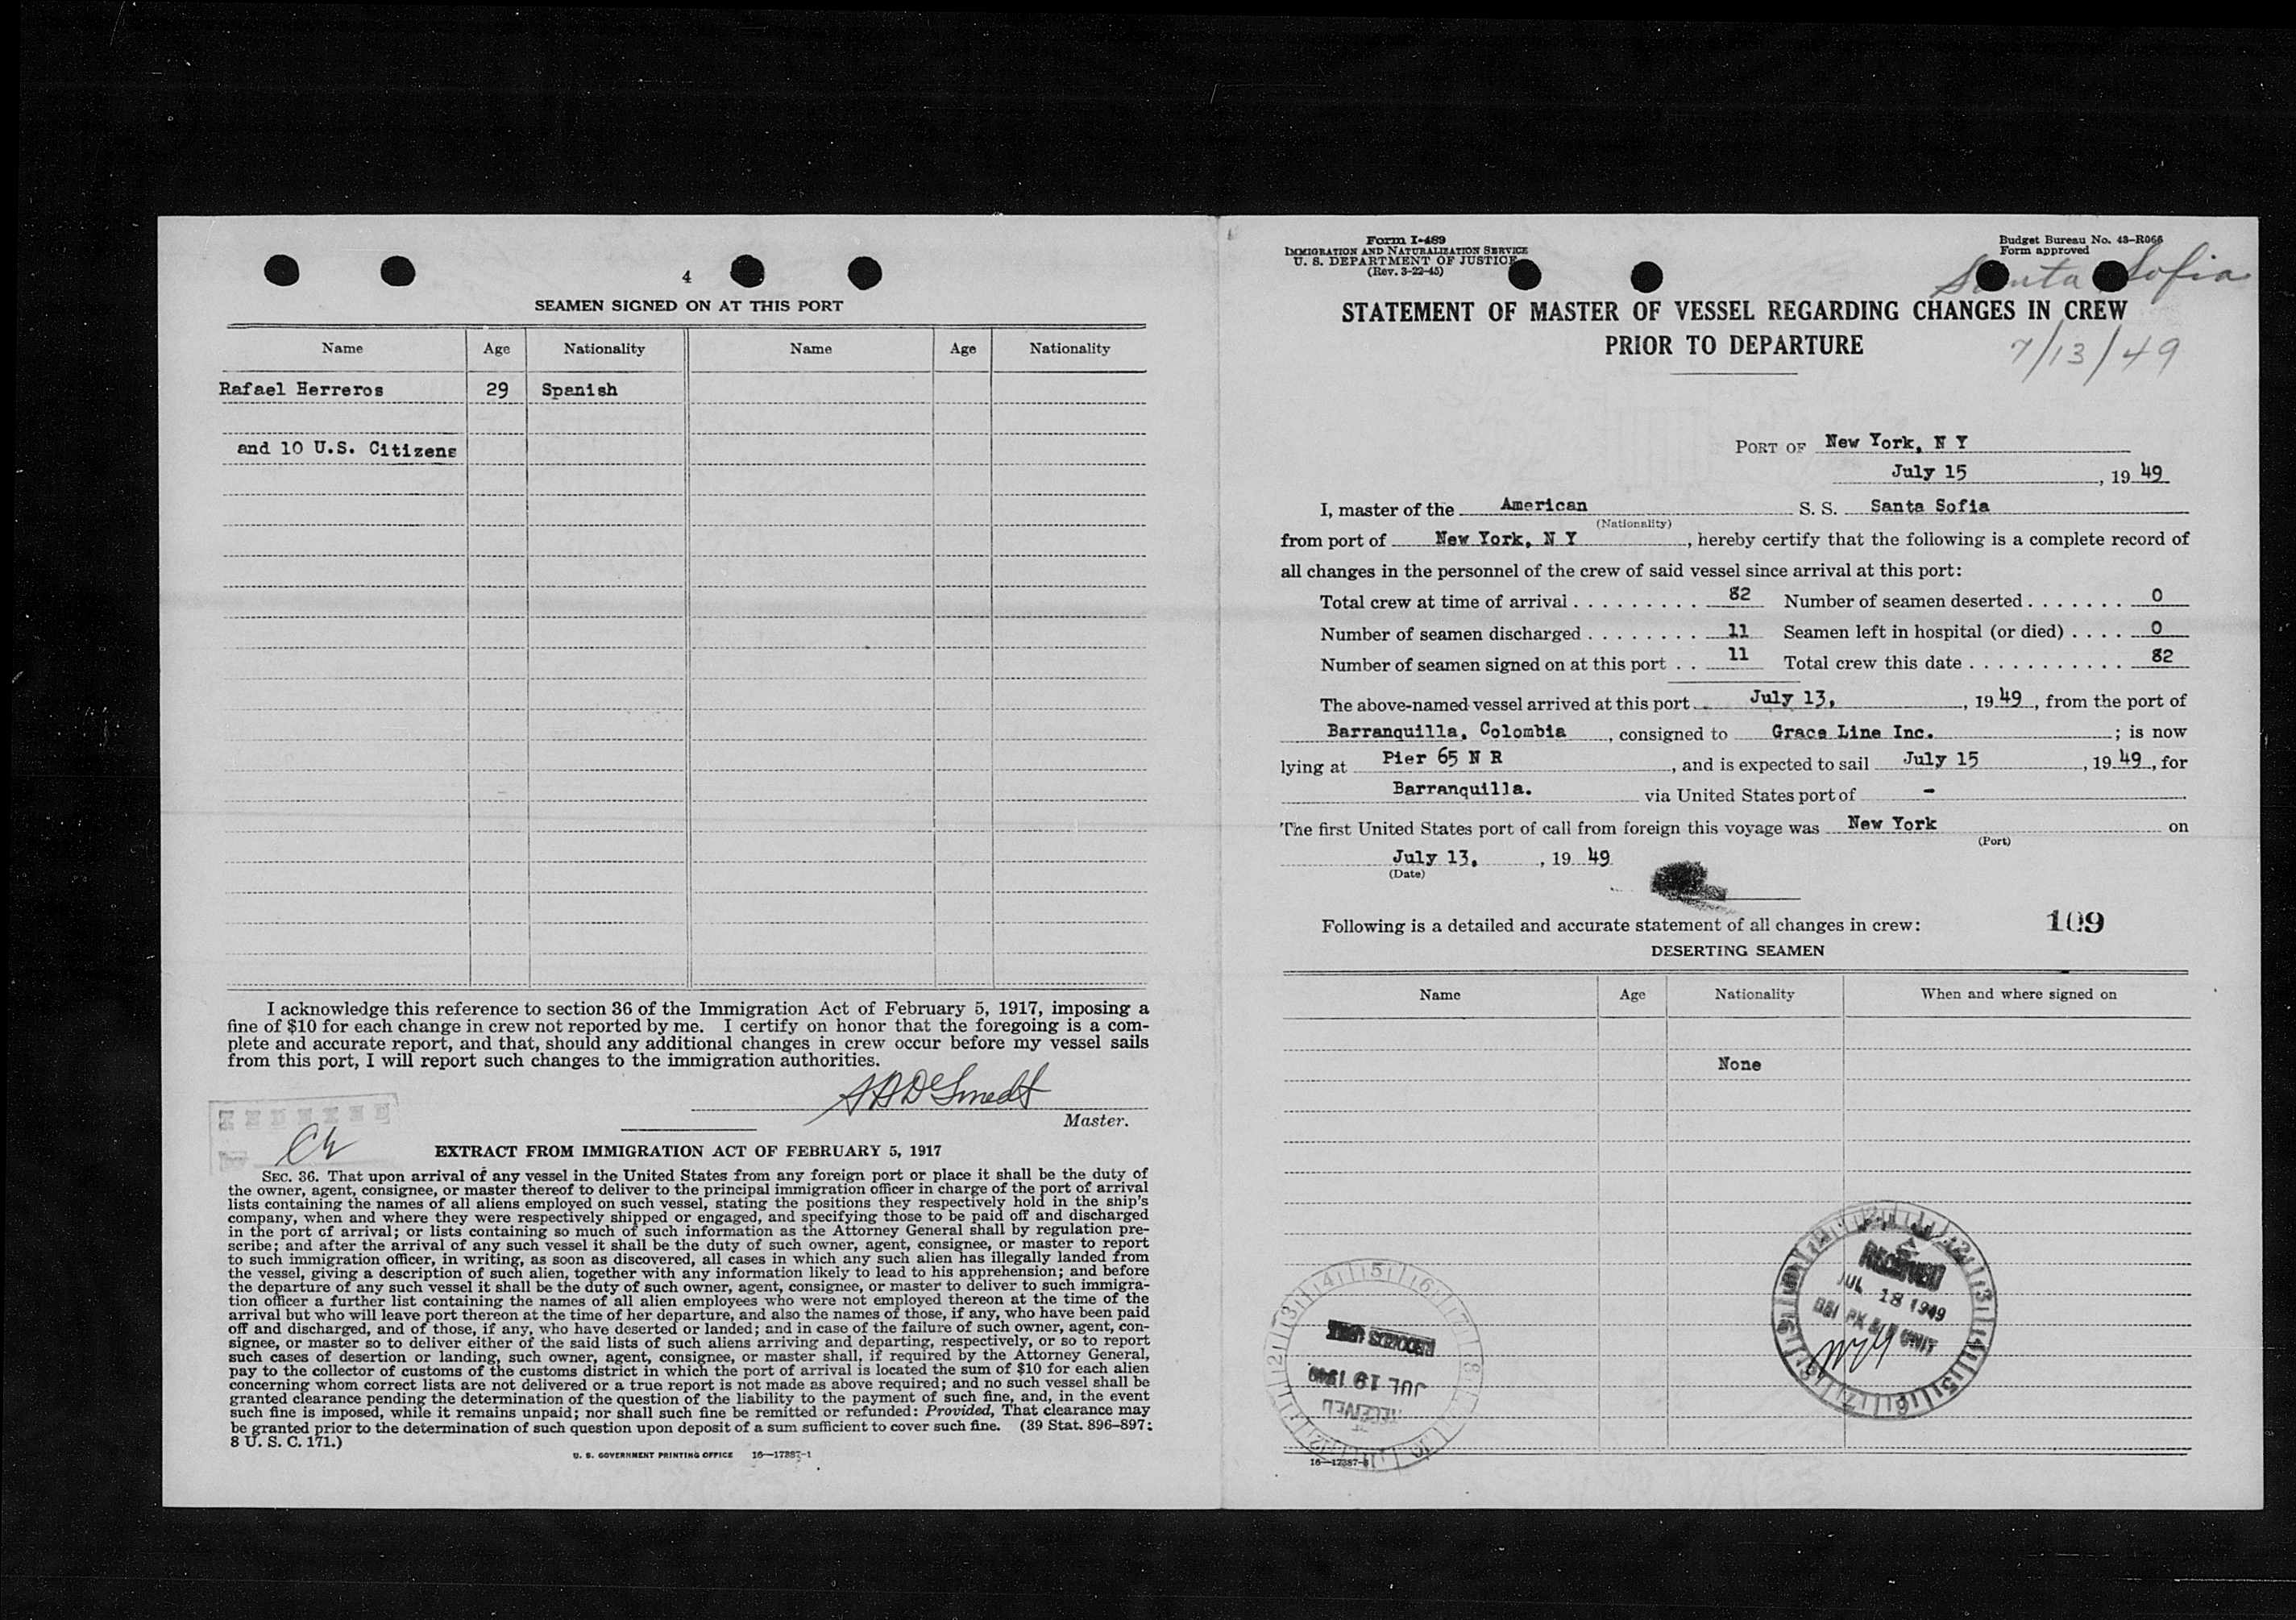 4
SEAMEN SIGNED ON AT THIS PORT
Name Age Nationality Name Age Nationality
Rafael Herreros 29 Spanish
and 10 U.S. Citizens
I acknowledge this reference to section 36 of the Immigration Act of February 5, 1917, imposing a
fine of $10 for each change in crew not reported by me. I certify on honor that the foregoing is a com-
plete and accurate report, and that, should any additional changes in crew occur before my vessel sails
from this port, I will report such changes to the immigration authorities.
Master.
EXTRACT FROM IMMIGRATION ACT OF FEBRUARY 5, 1917
SEC. 36. That upon arrival of any vessel in the United States from any foreign port or place it shall be the duty of
the owner, agent, consignee, or master thereof to deliver to the principal immigration officer in charge of the port of arrival
lists containing the names of all aliens employed on such vessel, stating the positions they respectively hold in the ship's
company, when and where they were respectively shipped or engaged, and specifying those to be paid off and discharged
in the port of arrival; or lists containing so much of such information as the Attorney General shall by regulation pre-
scribe; and after the arrival of any such vessel it shall be the duty of such owner, agent, consignee, or master to report
to such immigration officer, in writing, as soon as discovered, all cases in which any such alien has illegally landed from
the vessel, giving a description of such alien, together with any information likely to lead to his apprehension; and before
the departure of any such vessel it shall be the duty of such owner, agent, consignee, or master to deliver to such immigra-
tion officer a further list containing the names of all alien employees who were not employed thereon at the time of the
arrival but who will leave port thereon at the time of her departure, and also the names of those, if any, who have been paid
off and discharged, and of those, if any, who have deserted or landed; and in case of the failure of such owner, agent, con-
signee, or master so to deliver either of the said lists of such aliens arriving and departing, respectively, or so to report
such cases of desertion or landing, such owner, agent, consignee, or master shall, if required by the Attorney General,
pay to the collector of customs of the customs district in which the port of arrival is located the sum of $10 for each alien
concerning whom correct lists are not delivered or a true report is not made as above required; and no such vessel shall be
granted clearance pending the determination of the question of the liability to the payment of such fine, and, in the event
such fine is imposed, while it remains unpaid; nor shall such fine be remitted or refunded: Provided, That clearance may
be granted prior to the determination of such question upon deposit of a sum sufficient to cover such fine. (39 Stat. 896-897;
8 U. S. C. 171.)
U. S. GOVERNMENT PRINTING OFFICE 16—17387-1
Form I-489
IMMIGRATION AND NATURALIZATION SERVICE
U. S. DEPARTMENT OF JUSTICE
(Rev. 3-22-45)
Budget Bureau No. 43-R066
Form approved
Santa Sofia
STATEMENT OF MASTER OF VESSEL REGARDING CHANGES IN CREW
PRIOR TO DEPARTURE
7/13/49
PORT OF New York, N Y
July 15, 19 49
I, master of the American S. S. Santa Sofia
(Nationality)
from port of New York, N Y, hereby certify that the following is a complete record of
all changes in the personnel of the crew of said vessel since arrival at this port:
Total crew at time of arrival . . . . . . . . . 82 Number of seamen deserted . . . . . . . 0
Number of seamen discharged . . . . . . . . 11 Seamen left in hospital (or died) . . . . 0
Number of seamen signed on at this port . . 11 Total crew this date . . . . . . . . . . . 82
The above-named vessel arrived at this port July 13, , 19 49, from the port of
Barranquilla, Colombia, consigned to Grace Line Inc. ; is now
lying at Pier 65 N R, and is expected to sail July 15, 19 49, for
Barranquilla. via United States port of -
The first United States port of call from foreign this voyage was New York on
(Port)
July 13, , 19 49
(Date)
Following is a detailed and accurate statement of all changes in crew: 109
DESERTING SEAMEN
Name Age Nationality When and where signed on
None
RECEIVED
JUL 18 1949
RECORDS
JUL 19 1949
RECEIVED